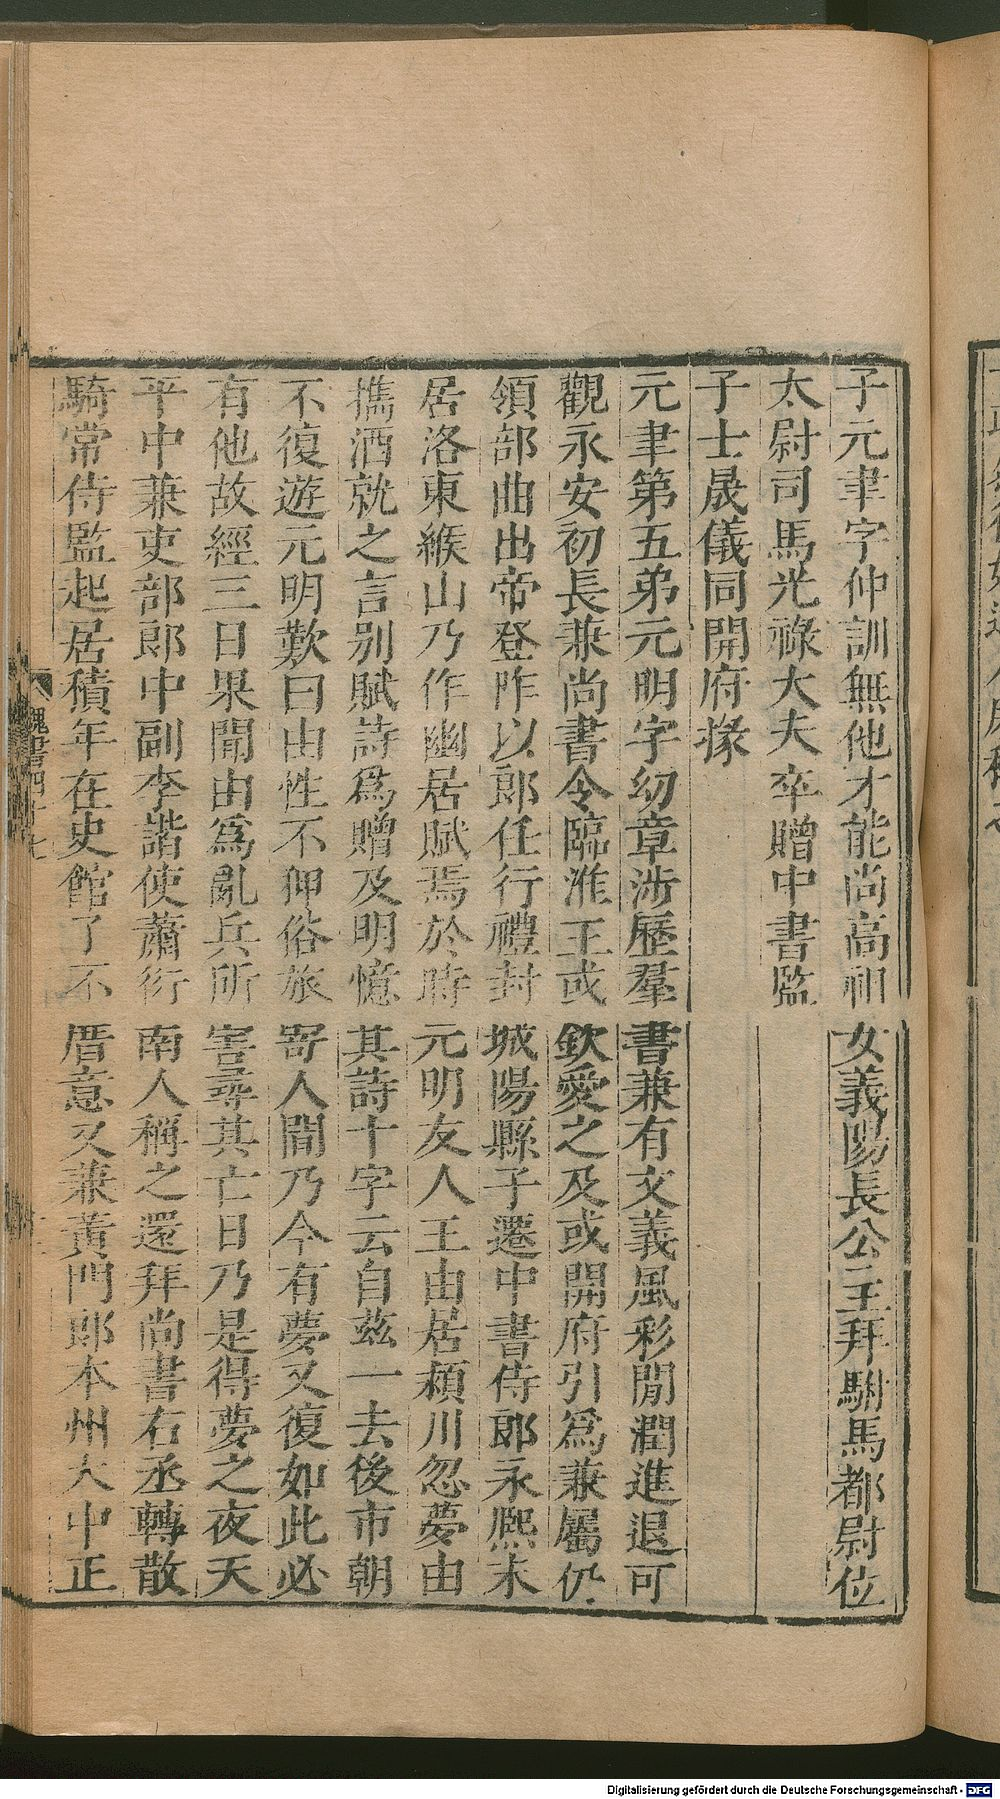 子元聿字仲訓無他才能尚高祖女義陽長公主拜駙馬都尉位
太尉司馬光祿大夫卒贈中書監
子士晟儀同開府掾
元聿第五弟元明字幼章涉歷羣書兼有文義風彩閒潤進退可
觀永安初長兼尚書令臨淮王彧欽愛之及彧開府引爲兼屬仍
領部曲出帝登阼以郎任行禮封城陽縣子遷中書侍郎永熙末
居洛東緱山乃作幽居賦焉於時元明友人王由居潁川忽夢由
攜酒就之言別賦詩爲贈及明憶其詩十字云自茲一去後市朝
不復遊元明歎曰由性不狎俗旅寄人間乃今有夢又復如此必
有他故經三日果聞由爲亂兵所害尋其亡日乃是得夢之夜天
平中兼吏部郎中副李諧使蕭衍南人稱之還拜尚書右丞轉散
騎常侍監起居積年在史館了不厝意又兼黃門郎本州大中正
魏書四十七
Digitalisierung gefördert durch die Deutsche Forschungsgemeinschaft - DFG